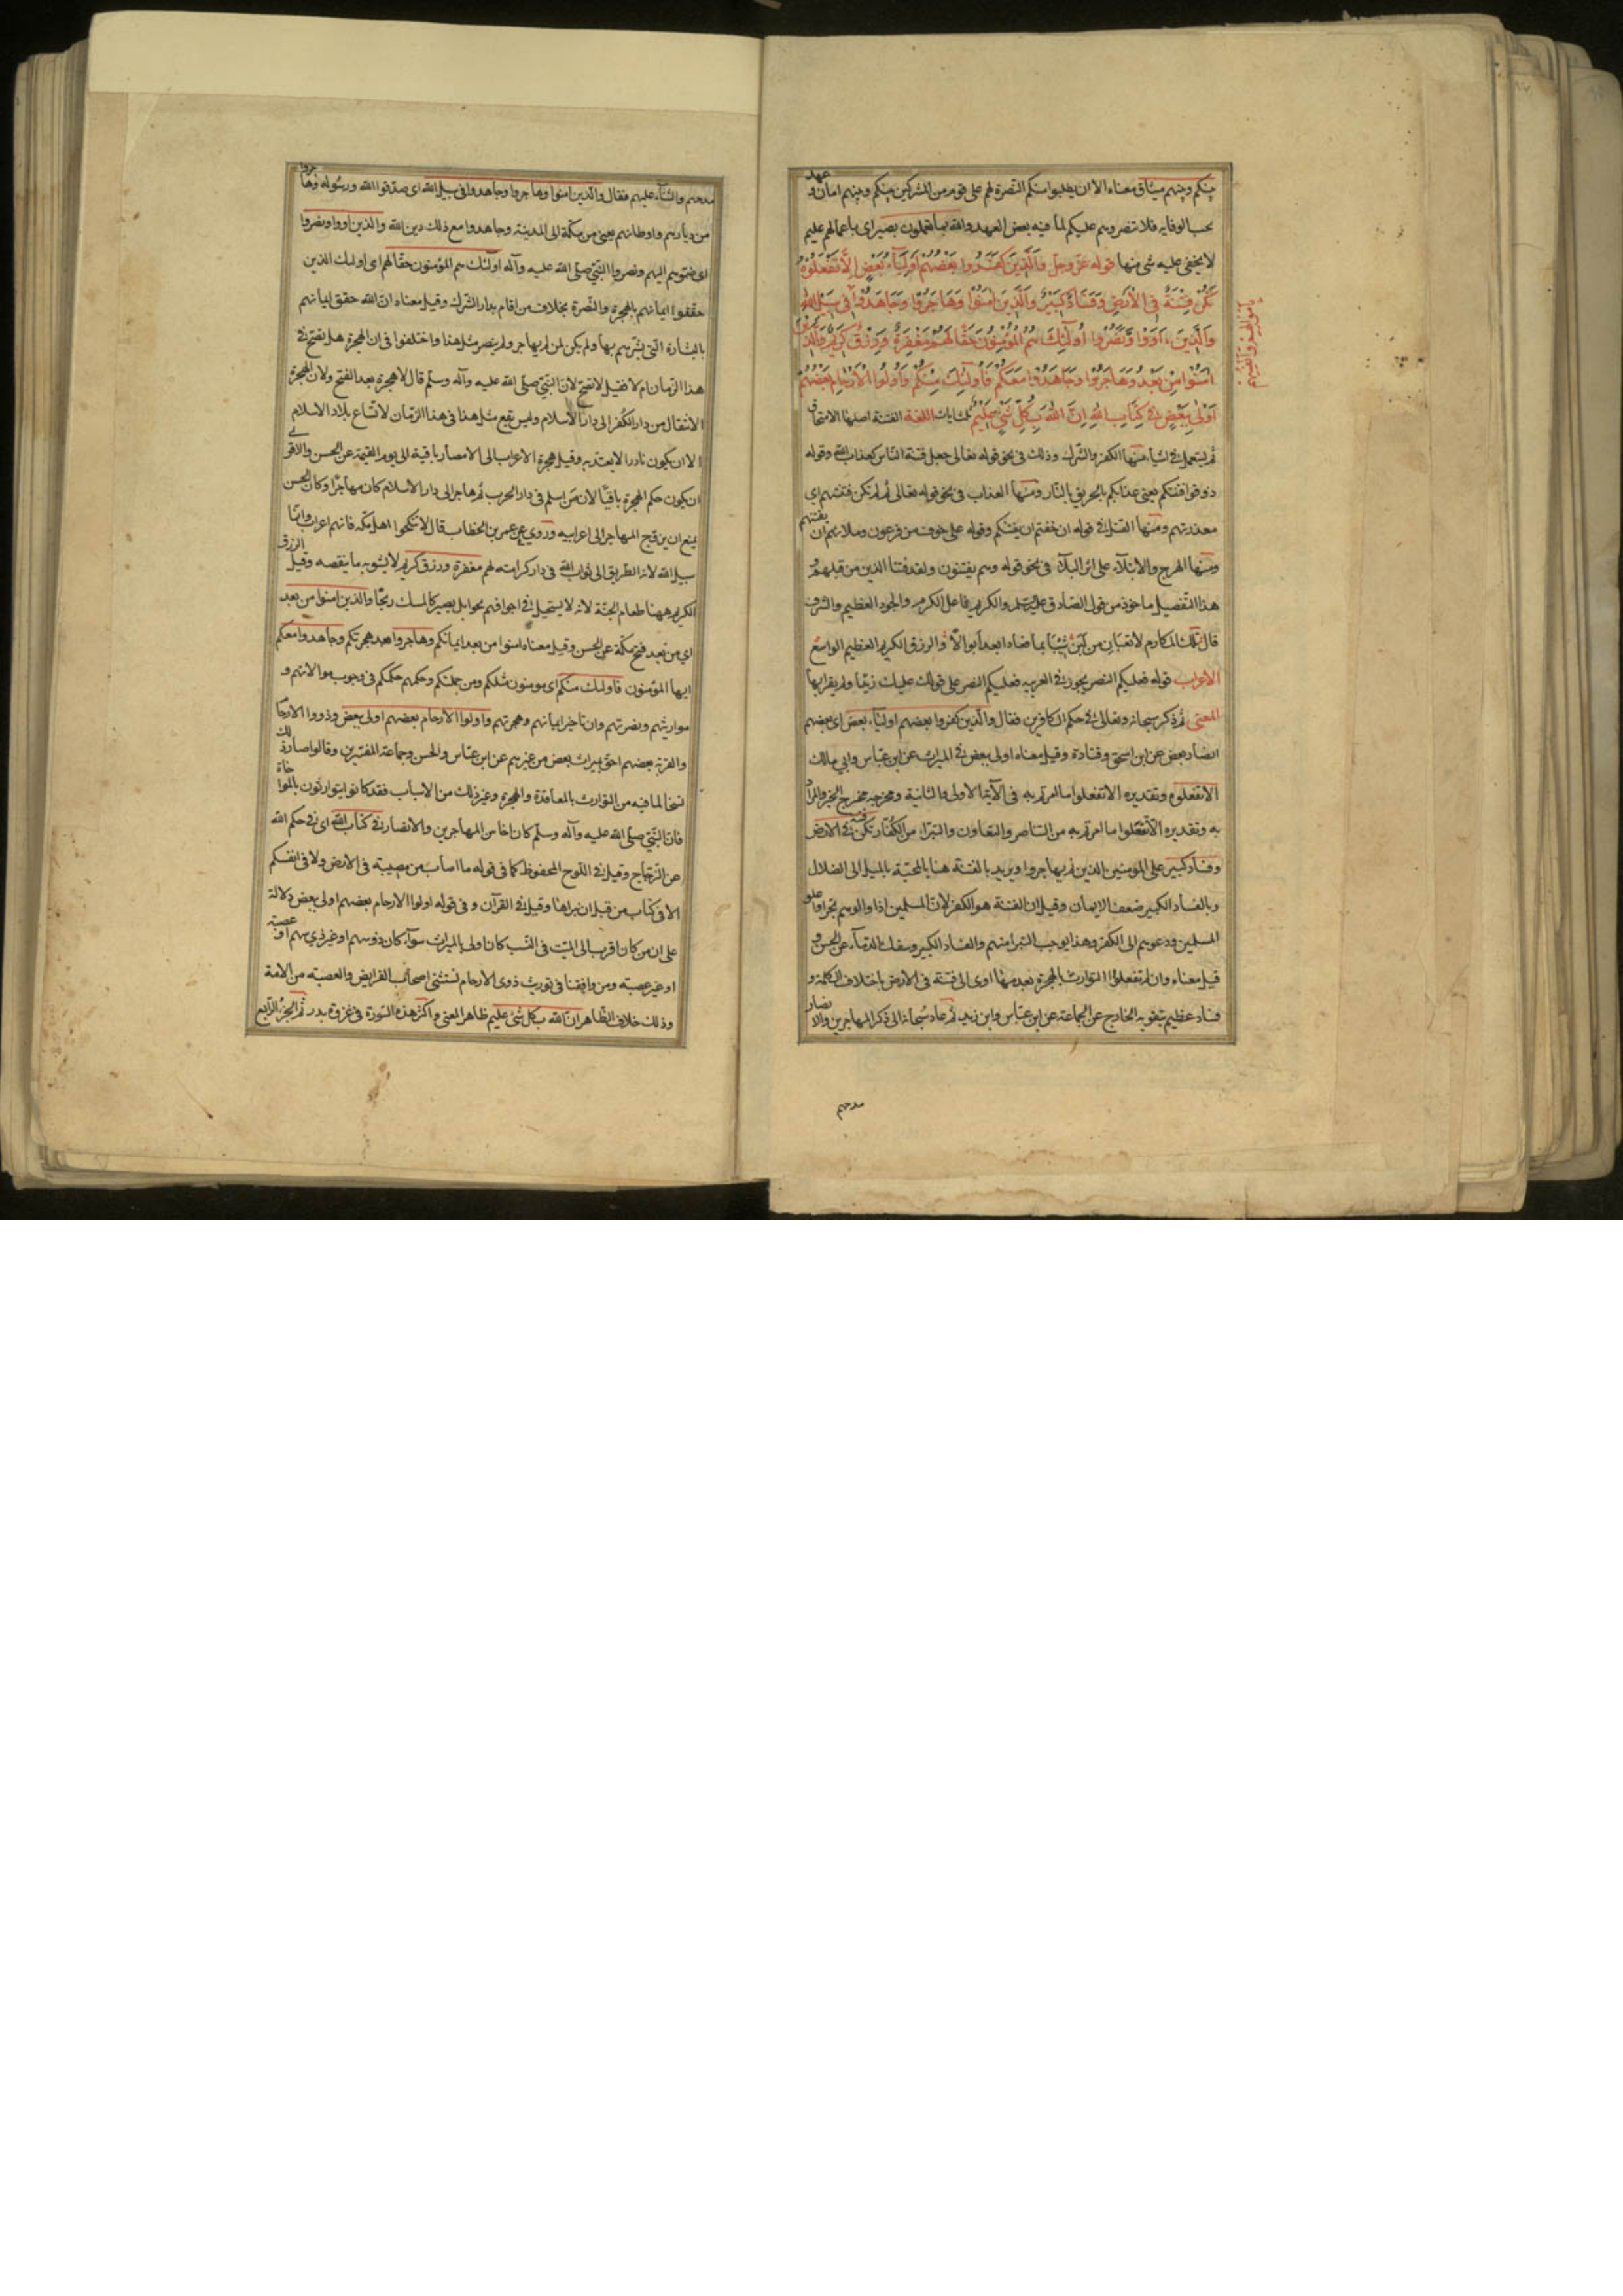 بينكم وبينهم ميثاق معناه الا ان يطلبوا منكم النصرة لهم على قوم من المشركين بينكم وبينهم امان وعهد
يجب الوفا به فلا تنصروهم عليكم لما فيه بعض العهد والله بما تعملون بصير اى باعمالهم عليم
لا يخفى عليه شى منها قوله عز وجل وَالَّذِينَ كَفَرُوا بَعْضُهُمْ أَوْلِيَآءُ بَعْضٍ إِلَّا تَفْعَلُوهُ
تَكُنْ فِتْنَةٌ فِي الْأَرْضِ وَفَسَادٌ كَبِيرٌ وَالَّذِينَ آمَنُوا وَهَاجَرُوا وَجَاهَدُوا فِي سَبِيلِ اللهِ
وَالَّذِينَ آوَوْا وَنَصَرُوا أُولَٰئِكَ هُمُ الْمُؤْمِنُونَ حَقًّا لَهُمْ مَغْفِرَةٌ وَرِزْقٌ كَرِيمٌ وَالَّذِينَ
آمَنُوا مِنْ بَعْدُ وَهَاجَرُوا وَجَاهَدُوا مَعَكُمْ فَأُولَٰئِكَ مِنْكُمْ وَأُولُوا الْأَرْحَامِ بَعْضُهُمْ
أَوْلَىٰ بِبَعْضٍ فِي كِتَابِ اللهِ إِنَّ اللهَ بِكُلِّ شَيْءٍ عَلِيمٌ ثلث ايات اللغة الفتنة اصلها الامتحان
ثم يستعمل فى اشيآء منها الكفر والشرك وذلك فى نحو قوله تعالى جعل فتنة الناس كعذاب الله وقوله
ذوقوا فتنتكم يعنى عذابكم بالحريق بالنار ومنها العذاب فى نحو قوله تعالى ثم لم تكن فتنتهم اى
معذرتهم ومنها القتل فى قوله ان خفتم ان يفتنكم وقوله على خوف من فرعون وملائهم ان يفتنهم
ومنها الهرج والابتلآء على اثر البلآء فى نحو قوله وهم يفتنون ولقد فتنا الذين من قبلهم
هذا التفصيل ماخوذ من قول الصادق عليه السلم والكريم فاعل الكرم والجود العظيم والشرف
قال تلك المكارم لا قعبان من لبن شيبا بماء فعادا بعد ابوالا والرزق الكريم العظيم الواسع
الاعراب قوله فعليكم النصر يجوز فى العربية فعليكم النصر على قولك عليك زيدا ولم يقرا بها
المعنى ثم ذكر سبحانه وتعالى فى حكم الكافرين فقال والذين كفروا بعضهم اوليآء بعض اى بعضهم
انصار بعض عن ابن اسحق وقتادة وقيل معناه اولى ببعض فى الميراث عن ابن عباس وابى مالك
الا تفعلوه وتقديره الا تفعلوا ما امرتم به فى الآية الاولى والثانية ومخرجه مخرج الخبر والمراد
به وتقديره الا تفعلوا ما امرتم به من التناصر والتعاون والتبرا من الكفار تكن فتنة فى الارض
وفساد كبير على المؤمنين الذين لم يهاجروا ويريد بالفتنة هنا بالمحنة بالميل الى الضلال
وبالفساد الكبير ضعف الايمان وقيل ان الفتنة هو الكفر لان المسلمين اذا والوهم تجراوا على
المسلمين ودعوهم الى الكفر وهذا يوجب التبرا منهم والفساد الكبير وسفك الدمآء عن الحسن و
قيل معناه وان لم تفعلوا التوارث بالهجرة بعد منها ادى الى فتنة فى الارض باختلاف الكلمة و
فساد عظيم بتقويه الخارج عن الجماعة عن ابن عباس وابن زيد ثم عاد سبحانه الى ذكر المهاجرين والانصار
مدحهم
مدحهم والثنآء عليهم فقال والذين امنوا وهاجروا وجاهدوا فى سبيل الله اى صدقوا الله ورسوله وهاجروا
من ديارهم واوطانهم يعنى من مكة الى المدينة وجاهدوا مع ذلك دين الله والذين اووا ونصروا
اى ضموهم اليهم ونصروا النبى صلى الله عليه وآله اولئك هم المؤمنون حقا لهم اى اولئك الذين
حققوا ايمانهم بالهجرة والنصرة بخلاف من اقام بدار الشرك وقيل معناه ان الله حقق ايمانهم
بالبشارة التى بشرهم بها ولم يكن لمن لم يهاجر ولم ينصر مثل هذا واختلفوا فى ان الهجرة هل تصح فى
هذا الزمان ام لا فقيل لا تصح لان النبى صلى الله عليه وآله وسلم قال لا هجرة بعد الفتح ولان الهجرة
الانتقال من دار الكفر الى دار الاسلام وليس يقع مثل هذا فى هذا الزمان لاتساع بلاد الاسلام
الا ان يكون نادرا لا يعتد به وقيل هجرة الاعراب الى الامصار باقية الى يوم القيمة عن الحسن والاقوى
ان يكون حكم الهجرة باقيا لان من اسلم فى دار الحرب ثم هاجر الى دار الاسلام كان مهاجرا وكان الحسن
يمنع ان يتزوج المهاجر الى اعرابيه وروى عن عمر بن الخطاب قال لا تنكحوا اهل مكه فانهم اعراب وانما
سبيل الله لانه الطريق الى ثواب الله فى دار كرامته لهم مغفرة ورزق كريم لا يشوبه ما ينقصه وقيل الرزق
الكريم ههنا طعام الجنة لانه لا يستحيل فى اجوافهم نجوا بل يصير كالمسك ريحا والذين امنوا من بعد
اى من بعد فتح مكة عن الحسن وقيل معناه امنوا من بعد ايمانكم وهاجروا بعد هجرتكم وجاهدوا معكم
ايها المؤمنون فاولئك منكم اى مومنون مثلكم ومن جملتكم وحكمهم حكمكم فى وجوب موالاتهم و
مواريثهم ونصرتهم وان تاخر ايمانهم وهجرتهم واولوا الارحام بعضهم اولى ببعض وذووا الارحام
والقربة بعضهم احق بميراث بعض من غيرهم عن ابن عباس والحسن وجماعة المفسرين وقالوا صار ذلك
نسخا لما فيه من التوارث بالمعاقدة والهجرة وغير ذلك من الاسباب فقد كانوا يتوارثون بالمواخاة
فان النبى صلى الله عليه وآله وسلم كان اخا من المهاجرين والانصار فى كتاب الله اى فى حكم الله
عن الزجاج وقيل فى اللوح المحفوظ كما فى قوله ما اصاب من مصيبة فى الارض ولا فى انفسكم
الا فى كتاب من قبل ان نبراها وقيل فى القرآن وفى قوله اولوا الارحام بعضهم اولى ببعض دلالة
على ان من كان اقرب الى الميت فى النسب كان اولى بالميراث سوآء كان ذو سهم او غير ذى سهم او عصبة
او غير عصبة ومن وافقنا فى توريث ذوى الارحام نستثنى اصحاب الفرايض والعصبه من الامة
وذلك خلاف الظاهر ان الله بكل شى عليم ظاهر المعنى واكثر هذه السورة فى غزوة بدر ثم الجزء الرابع